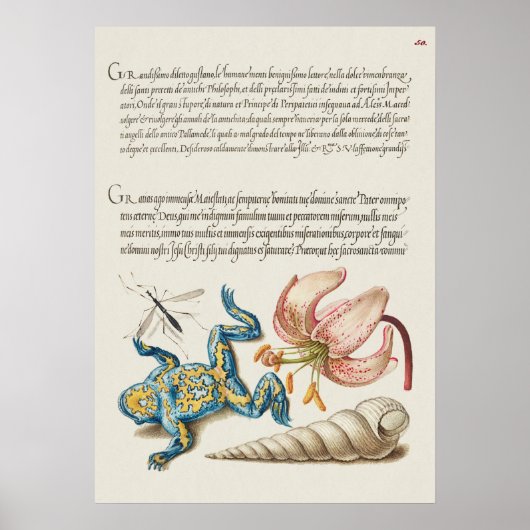 50.
GRandissimo diletto gustano, le humane menti benignissimo lettore, nella dolce rimembranza,
delli santi precetti de antichi Philosophi, et delli preclarissimi fatti de inditi et fortissimi Imper
atori, Onde il gran stupore di natura et Principe di Peripatetici insegnava ad Aless. Maced
volgere & rivolgere gli annali de la anchità: da quali sempre haverai per la sola mercede delli sacra
ti angelli dello antico Pallamede, li quali a malgrado del tempo ne liberano dalla oblivione di cose ran
to degne et excellenti, Desideroso caldamente di monstrare alla Ill. & R. S. V. la affetione grandiss
GRatias ago immensæ Maiestati, ac sempiternæ bonitati tuę domine sancte Pater omnipo
tens æternę Deus, qui me indignum famulum tuum et peccatorem miserum, nullis meis
meritis, immo tuis multis et immensis exigentibus miserationibus, corpore et sangui
ne domini nostri Jesu Christi filij tui dignatus es saturare: Precor, ut hec sacrosancta commu